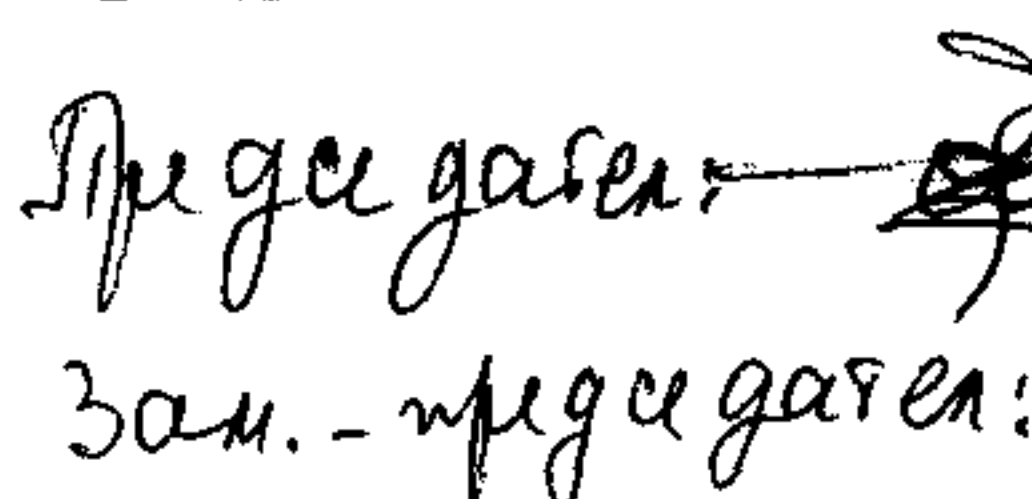 Председател:
Зам. - председател: